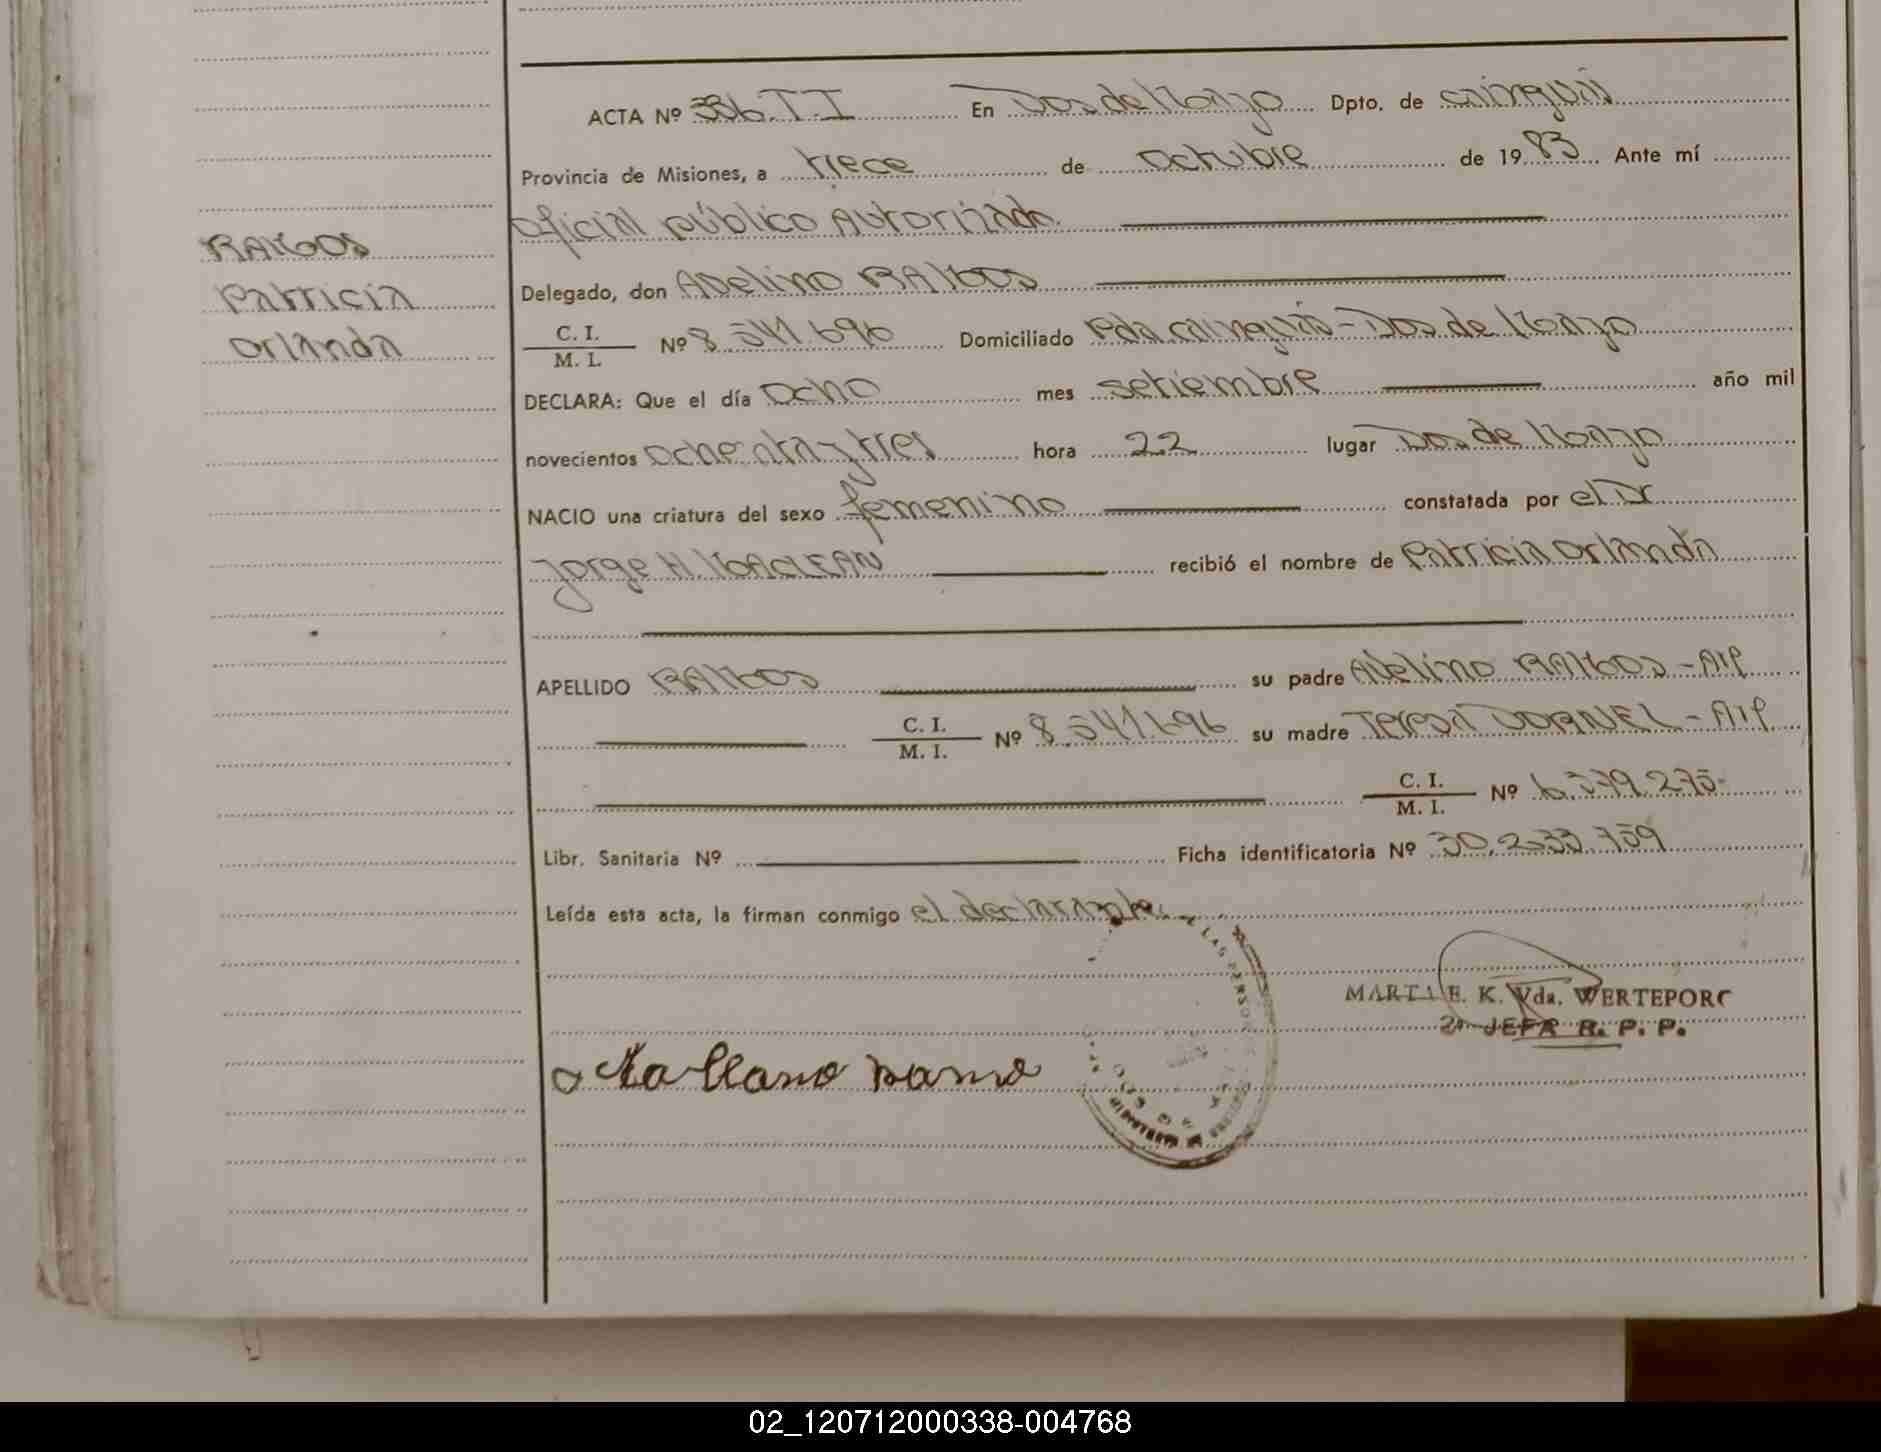 ACTA Nº 336. T. I En Dos de Mayo Dpto. de Cainguás
Provincia de Misiones, a trece de Octubre de 1983 Ante mí
Oficial público Autorizado.
RAMOS
Delegado, don Adelino RAMOS
Patricia
C. I.
M. I. Nº 8.541.696 Domiciliado Pda. Cainguás - Dos de Mayo
Orlanda
DECLARA: Que el día Ocho mes setiembre año mil
novecientos Ochenta y tres hora 22 lugar Dos de Mayo
NACIO una criatura del sexo femenino constatada por el Dr
Jorge H. MACLEAN recibió el nombre de Patricia Orlanda
APELLIDO RAMOS su padre Adelino RAMOS - Arg
C. I.
M. I. Nº 8.541.696 su madre Teresa DORNEL - Arg
C. I.
M. I. Nº 6.379.275-
Libr. Sanitaria Nº Ficha identificatoria Nº 30.233.759
Leída esta acta, la firman conmigo el declarante.
LAS PERSON
MARTA E. K. Vda. WERTEPORC
2ª JEFA R. P. P.
02_120712000338-004768